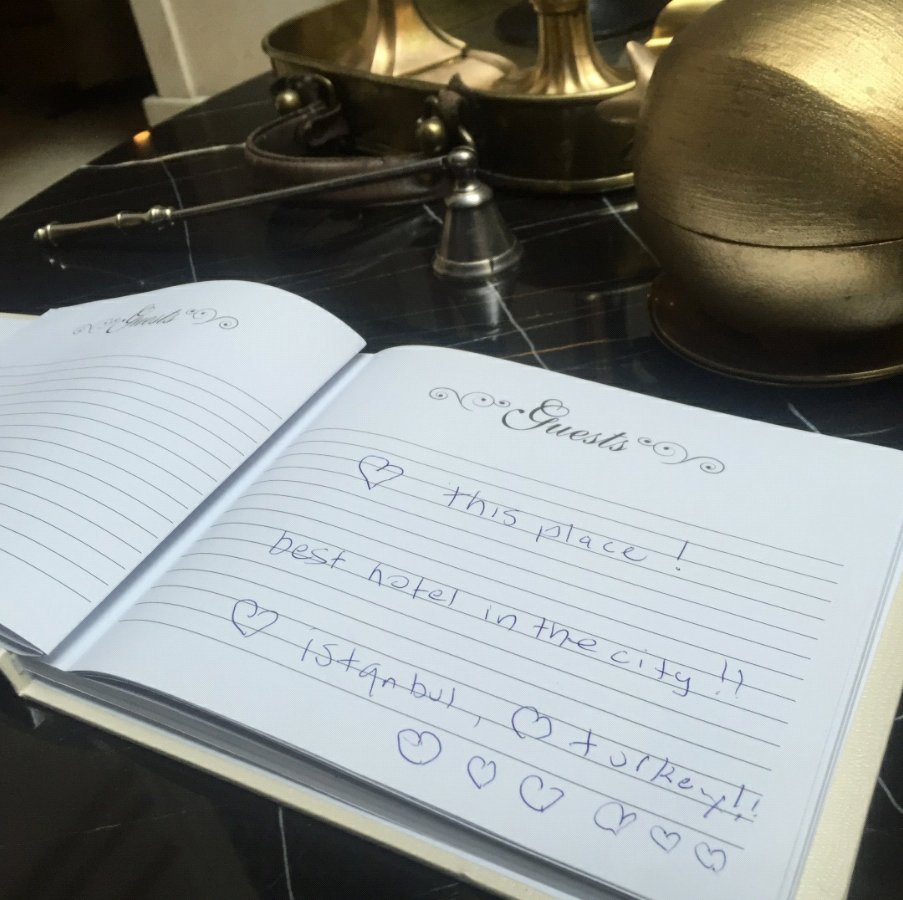 Guests
Guests
♡ this place!
best hotel in the city!!
♡ istanbul, ♡ turkey!!
♡ ♡ ♡ ♡ ♡ ♡